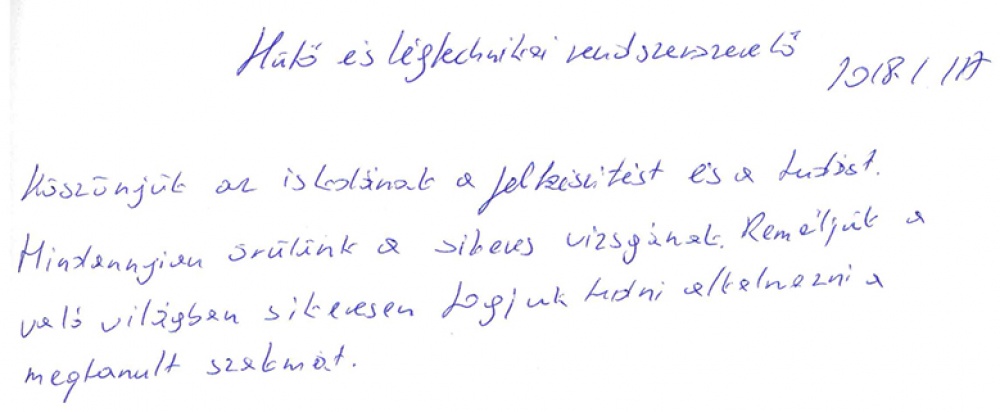 Hűtő és légtechnikai rendszerszerelő
2018. 1. 17
Köszönjük az iskolának a felkészítést és a tudást.
Mindannyian örülünk a sikeres vizsgának. Reméljük a
való világban sikeresen fogjuk tudni alkalmazni a
megtanult szakmát.